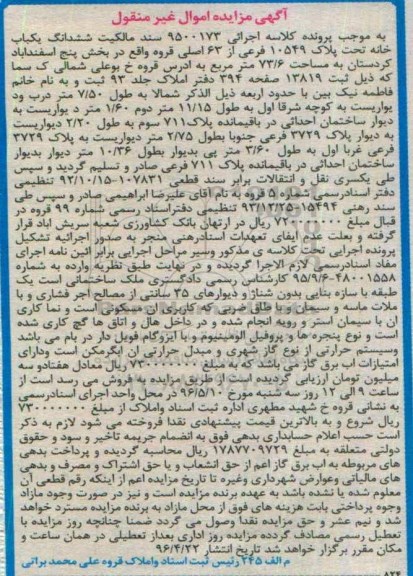 آگهی مزایده اموال غیر منقول
به موجب پرونده کلاسه اجرائی ۹۵۰۰۱۷۳ سند مالکیت ششدانگ یکباب
خانه تحت پلاک ۱۰۵۴۹ فرعی از ۶۳ اصلی قروه واقع در بخش پنج اسفندآباد
کردستان به مساحت ۷۳/۶ متر مربع به آدرس قروه خ بوعلی شمالی ک سما
که ذیل ثبت ۱۳۸۱۹ صفحه ۳۹۴ دفتر املاک جلد ۹۳ ثبت و به نام خانم
فاطمه نیک بین با حدود اربعه ذیل الذکر شمالا به طول ۷/۵۰ متر درب ود
یواریست به کوچه شرقا اول به طول ۱۱/۱۵ متر دوم ۱/۶۰ متر د یواریست به
دیوار ساختمان احداثی در باقیمانده پلاک۷۱۱ سوم به طول ۲/۲۰ دیواریست
به دیوار پلاک ۳۷۲۹ فرعی جنوبا بطول ۲/۷۵ متر دیواریست به پلاک ۳۷۲۹
فرعی غربا اول به طول ۳/۶۰ متر پی بدیوار بطول ۱۰/۳۶ متر دیوار بدیوار
ساختمان احداثی در باقیمانده پلاک ۷۱۱ فرعی صادر و تسلیم گردید و سپس
طی یکسری نقل و انتقالات برابر سند قطعی ۱۰۷۸۳۱-۹۲/۱۰/۱۵ تنظیمی
دفتر اسنادرسمی شماره ۵ قروه به نام آقای علیرضا ابراهیمی صادر و سپس طی
سند رهنی ۱۵۴۹۴-۹۳/۱۲/۲۵ تنظیمی دفتراسناد رسمی شماره ۹۹ قروه در
قبال مبلغ ریال در ارتهان بانک کشاورزی شعبه سریش آباد قرار
گرفته و بعلت عدم ایفای تعهدات اسنادرهنی منجر به صدور اجرائیه تشکیل
پرونده اجرایی تحت کلاسه ی مذکور وسیر مراحل اجرایی برابر آئین نامه اجرای
مفاد اسنادرسمی لازم الاجرا گردیده و در نهایت طبق نظریه وارده به شماره
۹۵/۹/۶-۴۸۰۰۱۵۵۸ کارشناس رسمی دادگستری ملک ساختمانی است یک
طبقه با سازه بنایی بدون شناژ و دیوارهای ۳۵ سانتی از مصالح آجر فشاری و با
ملات ماسه و سیمان و با طاق ضربی که کاربری آن مسکونی است و نما کاری
آن با سیمان استر و رویه انجام شده و در داخل هال و اتاق ها گچ کاری شده
است و نوع پنجره ها و پروفیل آلومینیوم و با ایزوگام فویل دار در بام می باشد
وسیستم حرارتی از نوع گاز شهری و مبدل حرارتی آن آبگرمکن است ودارای
امتیازات آب برق گاز می باشد که به مبلغ ریال معادل هفتادو سه
میلیون تومان ارزیابی گردیده است از طریق مزایده به فروش می رسد است از
ساعت ۹ الی ۱۲ روز سه شنبه مورخ ۹۶/۵/۱۰ در محل واحد اجرای اسنادرسمی
به نشانی قروه خ شهید مطهری اداره ثبت اسناد واملاک از مبلغ ۷۳۰۰۰۰۰۰۰
ریال شروع و به بالاترین قیمت پیشنهادی نقدا فروخته می شود لازم به ذکر
است حسب اعلام حسابداری بدهی فوق به انضمام جریمه تاخیر و سود و حقوق
دولتی متعلقه به مبلغ ۱۷۸۷۷۰۹۷۲۹ ریال محاسبه گردیده و پرداخت بدهی
های مربوطه به آب برق گاز اعم از حق انشعاب و یا حق اشتراک و مصرف و بدهی
های مالیاتی وعوارض شهرداری وغیره تا تاریخ مزایده اعم از اینکه رقم قطعی آن
معلوم شده یا نشده باشد به عهده برنده مزایده است و نیز در صورت وجود مازاد
وجوه پرداختی بابت هزینه های فوق از محل مازاد به برنده مزایده مسترد خواهد
شد و نیم عشر و حق مزایده نقدا وصول می گردد ضمنا چنانچه روز مزایده با
تعطیل رسمی مصادف گردد مزایده روز اداری بعداز تعطیلی در همان ساعت و
مکان مقرر برگزار خواهد شد تاریخ انتشار ۹۶/۴/۲۲
م الف ۲۴۵ رئیس ثبت اسناد واملاک قروه علی محمد براتی
۸۲۴